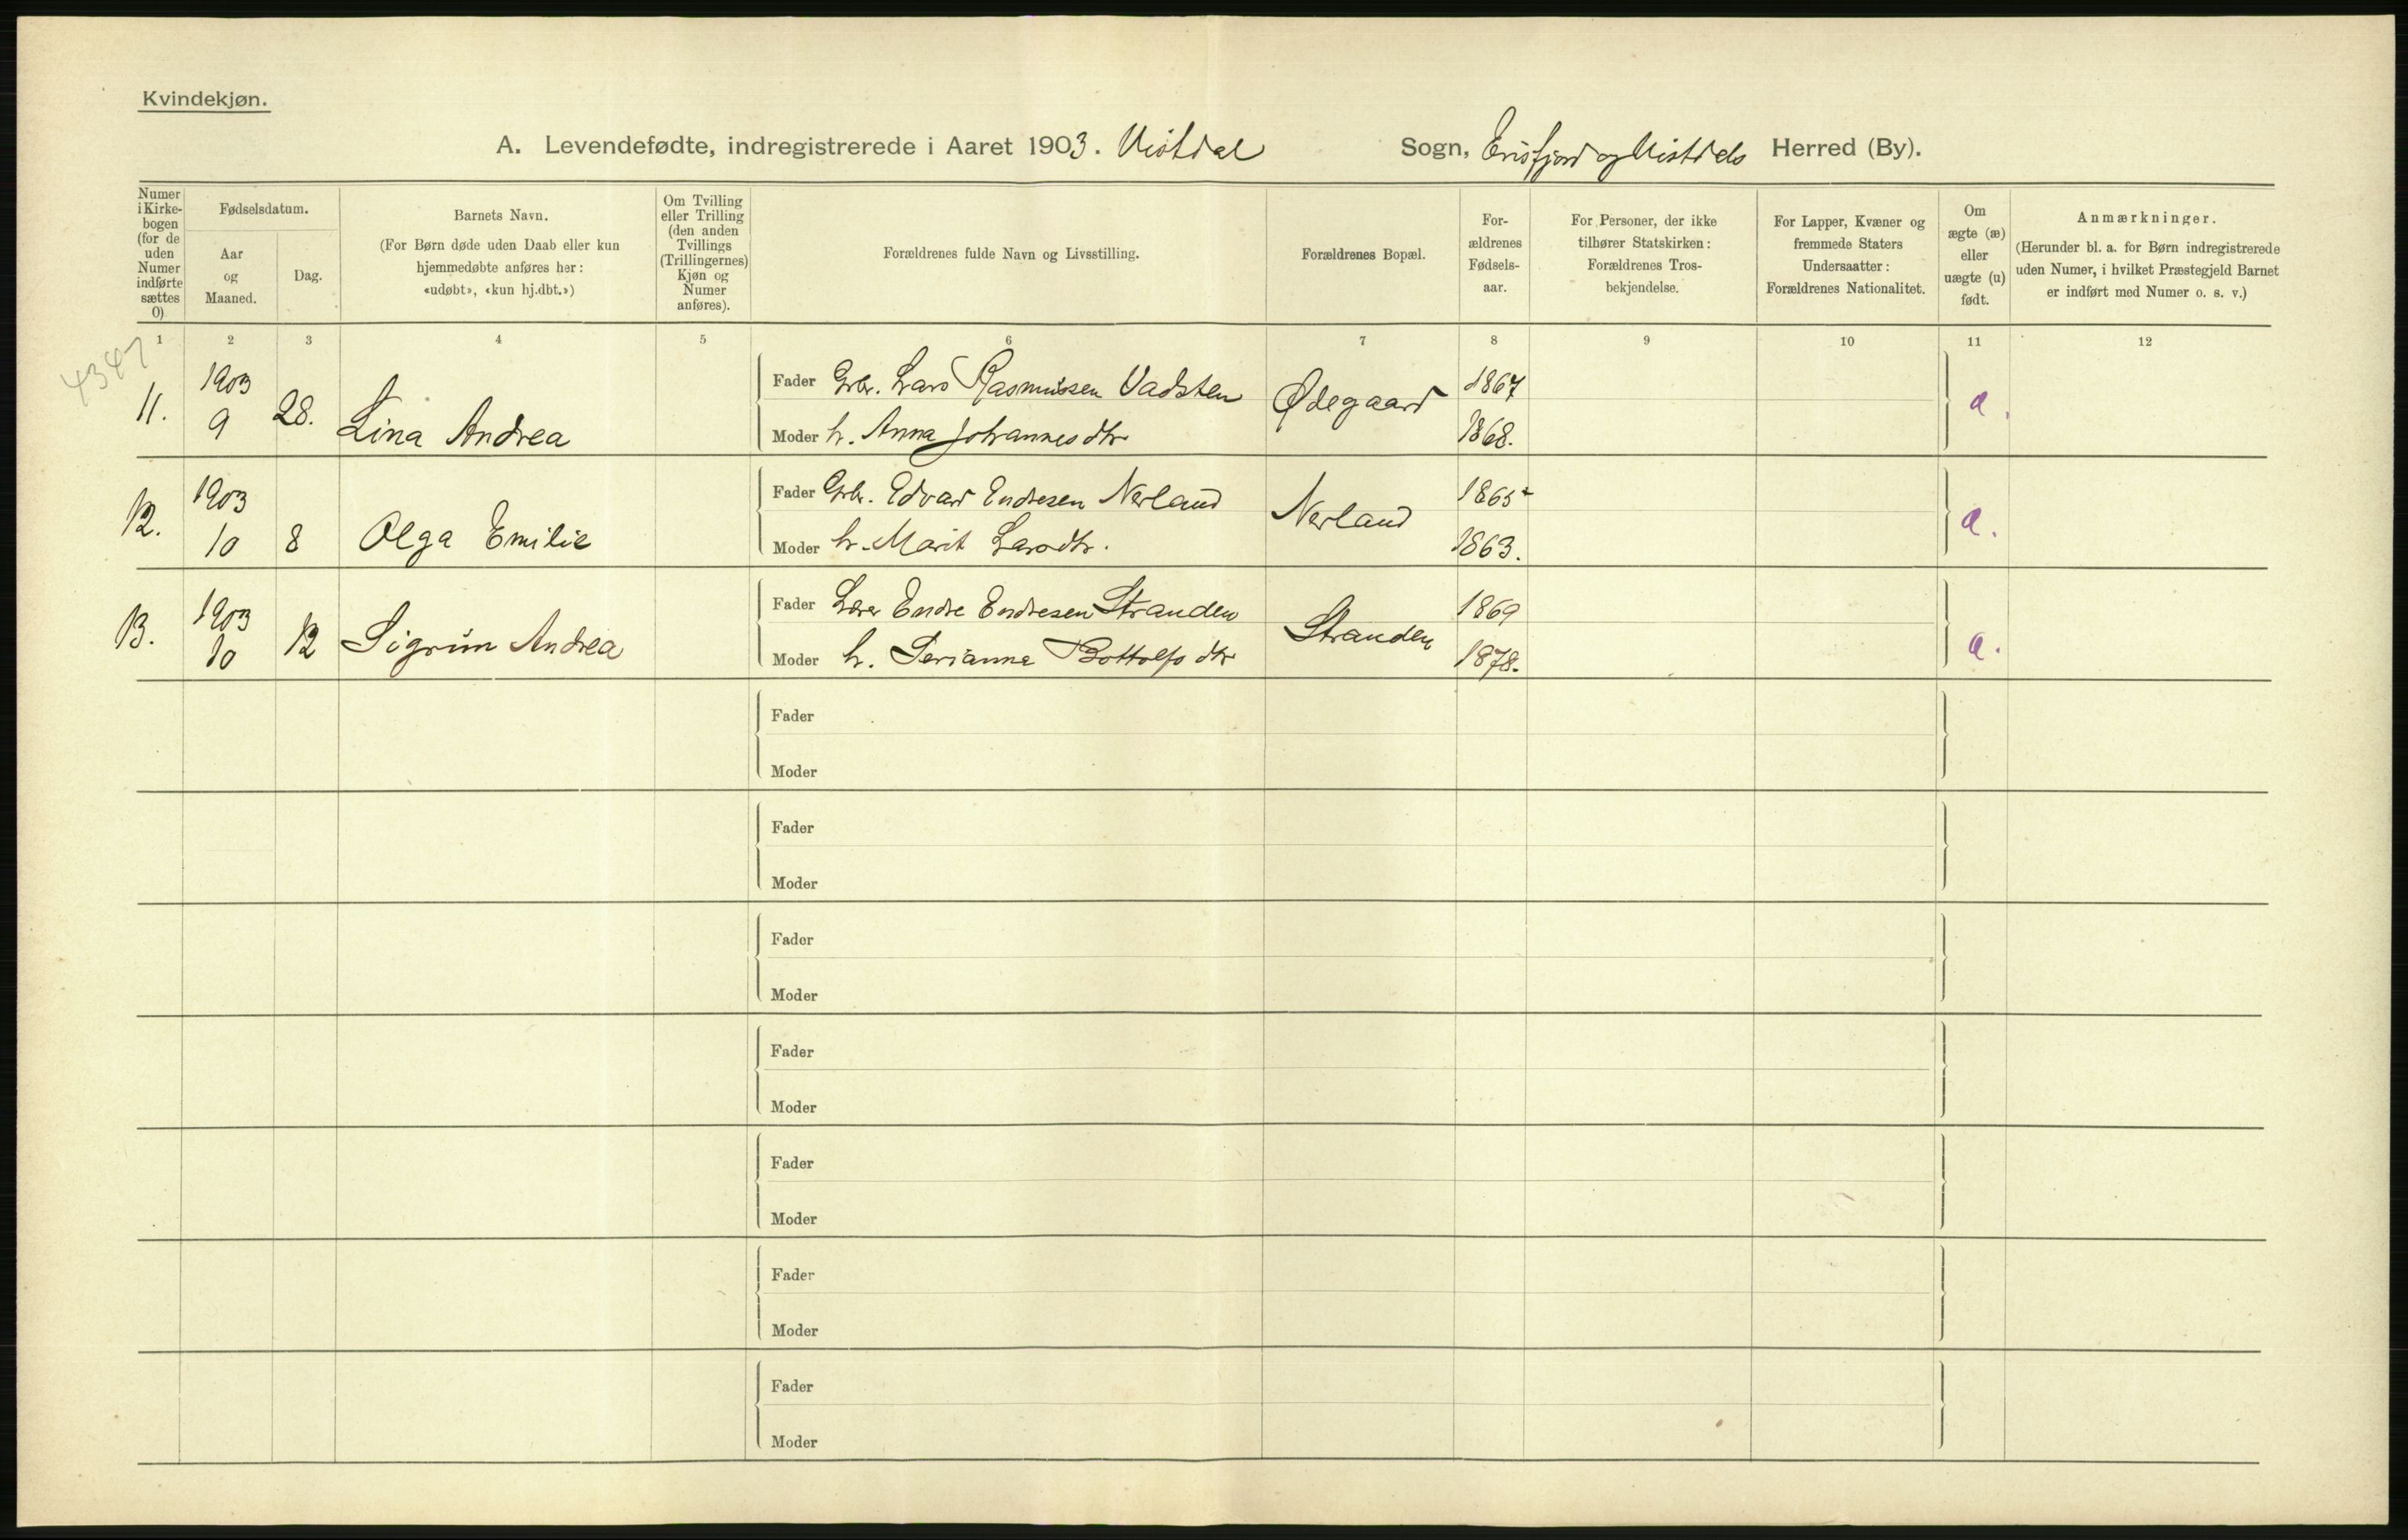 Kvindekjøn.
A. Levendefødte, indregistrerede i Aaret 1903. Vistdal Sogn, Erisfjord og Vistdals Herred (By).
Numer i Kirkebogen (for de uden Numer indførte sættes 0)
Fødselsdatum.
Aar og Maaned.
Dag.
Barnets Navn.
(For Børn døde uden Daab eller kun
hjemmedøbte anføres her:
«udøbt», «kun hj.dbt.»)
Om Tvilling
eller Trilling
(den anden
Tvillings
(Trillingernes)
Kjøn og
Numer
anføres).
Forældrenes fulde Navn og Livsstilling.
Forældrenes Bopæl.
For-
ældrenes
Fødsels-
aar.
For Personer, der ikke
tilhører Statskirken:
Forældrenes Tros-
bekjendelse.
For Lapper, Kvæner og
fremmede Staters
Undersaatter:
Forældrenes Nationalitet.
Om
ægte (æ)
eller
uægte (u)
født.
Anmærkninger.
(Herunder bl. a. for Børn indregistrerede
uden Numer, i hvilket Præstegjeld Barnet
er indført med Numer o. s. v.)
1 2 3 4 5 6 7 8 9 10 11 12
4347
11. 1903 9 28. Lina Andrea
Fader Gbr. Lars Rasmussen Vadsten Ødegaard 1867
Moder h. Anna Johannesdtr 1868.
æ.
12. 1903 10 8 Olga Emilie
Fader Gbr. Edvard Endresen Nerland Nerland 1865
Moder h. Marit Larsdtr. 1863.
æ.
13. 1903 10 12 Sigrun Andrea
Fader Lærer Endre Endresen Stranden Stranden 1869
Moder h. Serianna Bottolfs dtr 1878.
æ.
Fader
Moder
Fader
Moder
Fader
Moder
Fader
Moder
Fader
Moder
Fader
Moder
Fader
Moder